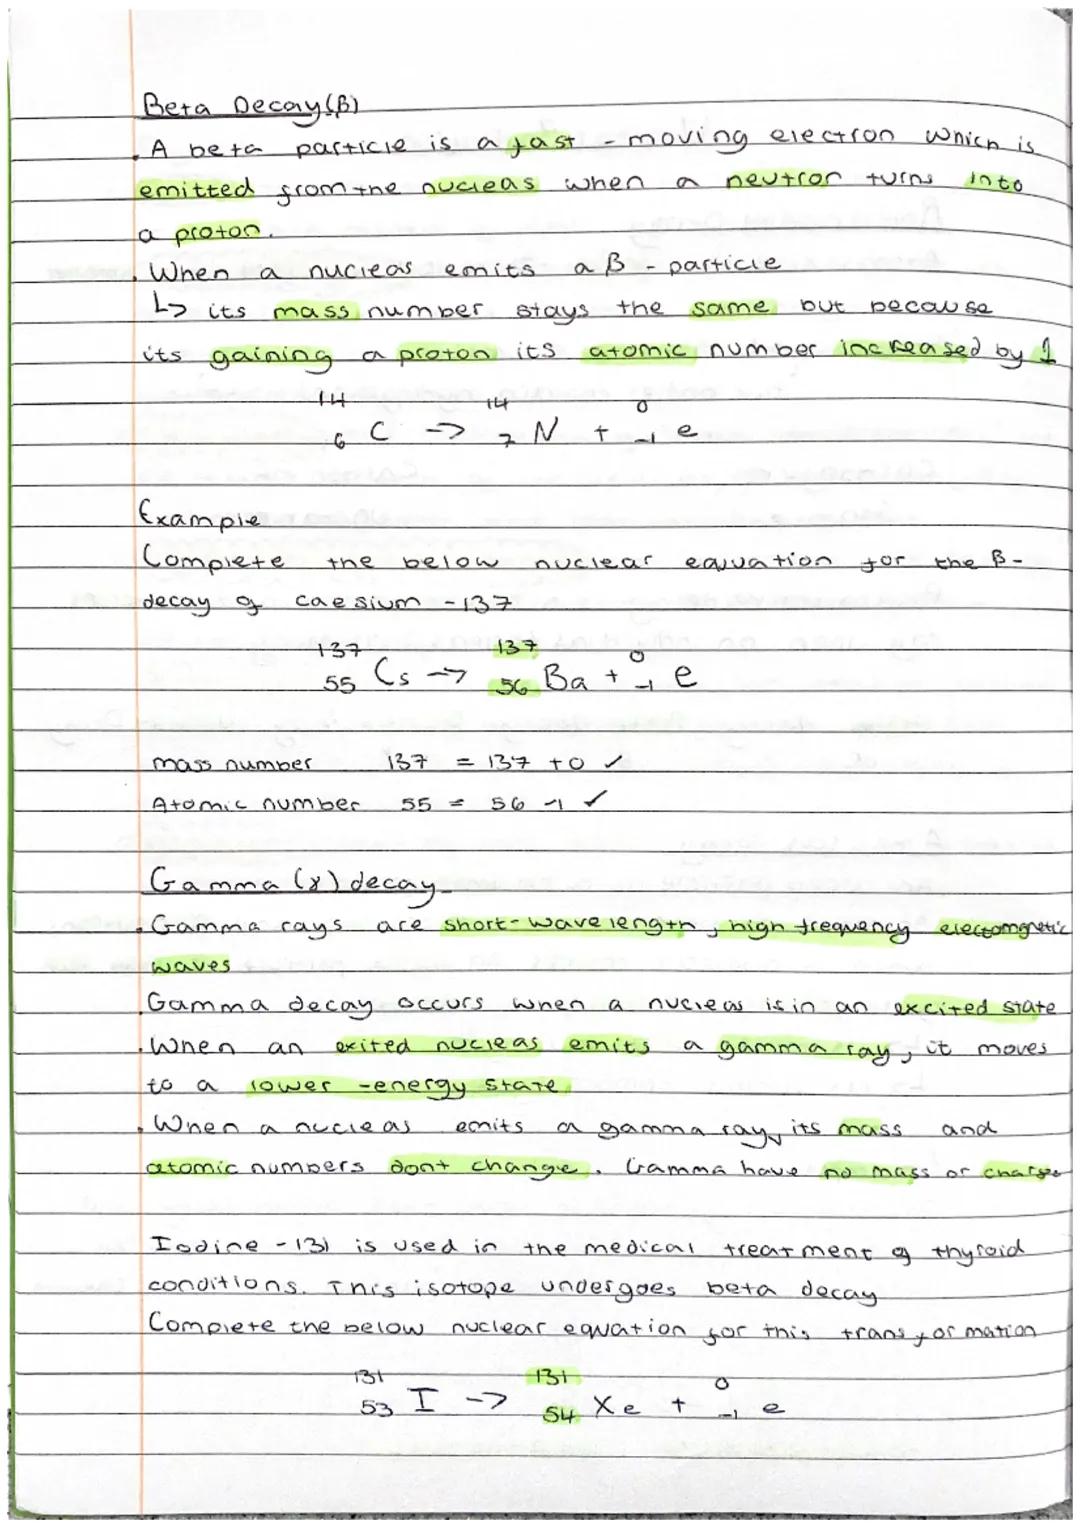 Beta Decay (β)
. A beta particle is a fast - moving electron which is
emitted from the nucleas when a neutron turns into
a proton.
. When a nucleas emits a β - particle
↳ its mass number stays the same but because
its gaining a proton its atomic number increased by 1
14 14 0
6 C -> 7 N + -1 e
Example
Complete the below nuclear equation for the β-
decay of caesium -137
137 137 0
55 Cs -> 56 Ba + -1 e
mass number 137 = 137 + 0 ✓
Atomic number 55 = 56 -1 ✓
Gamma (γ) decay
. Gamma rays are short-wavelength, high frequency electomgnetic
waves
. Gamma decay occurs when a nucleas is in an excited state
. When an exited nucleas emits a gamma ray, it moves
to a lower -energy state.
. When a nucleas emits a gamma ray, its mass and
atomic numbers dont change. Gamma have no mass or charge
Iodine -131 is used in the medical treatment of thyroid
conditions. This isotope undergoes beta decay
Complete the below nuclear equation for this transformation
131 131 0
53 I -> 54 Xe + -1 e